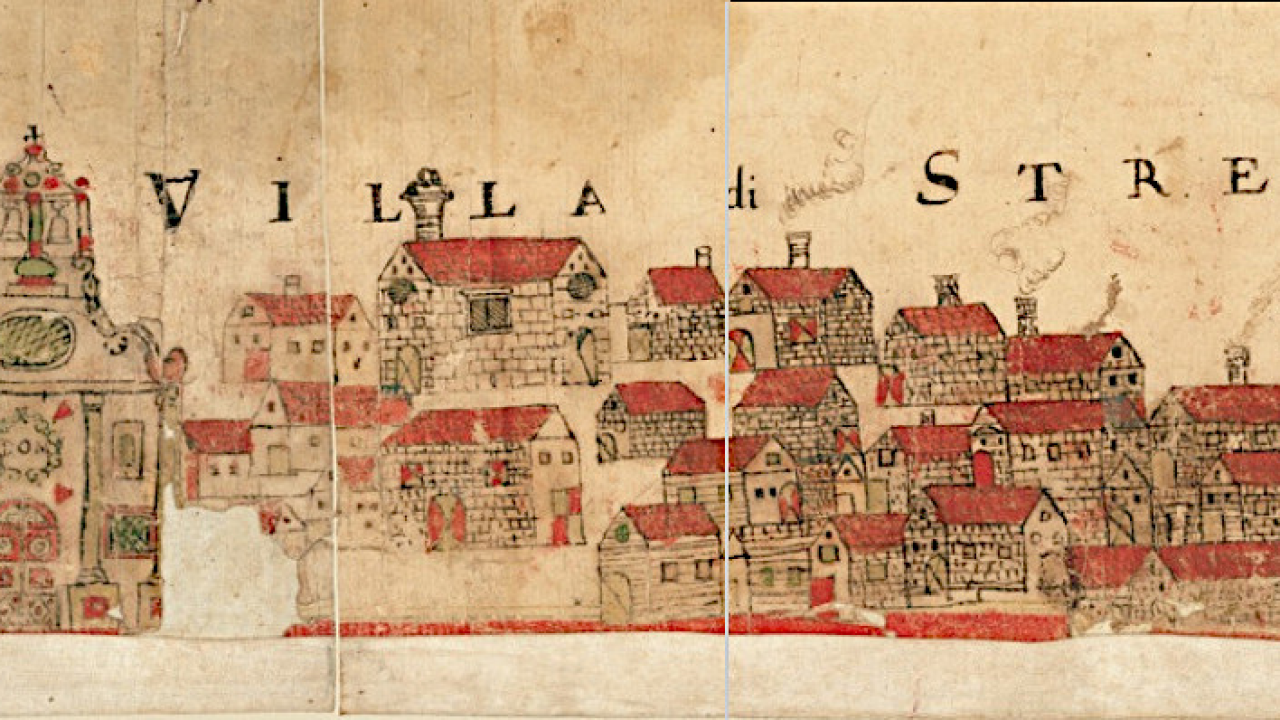 VILLA di STRE